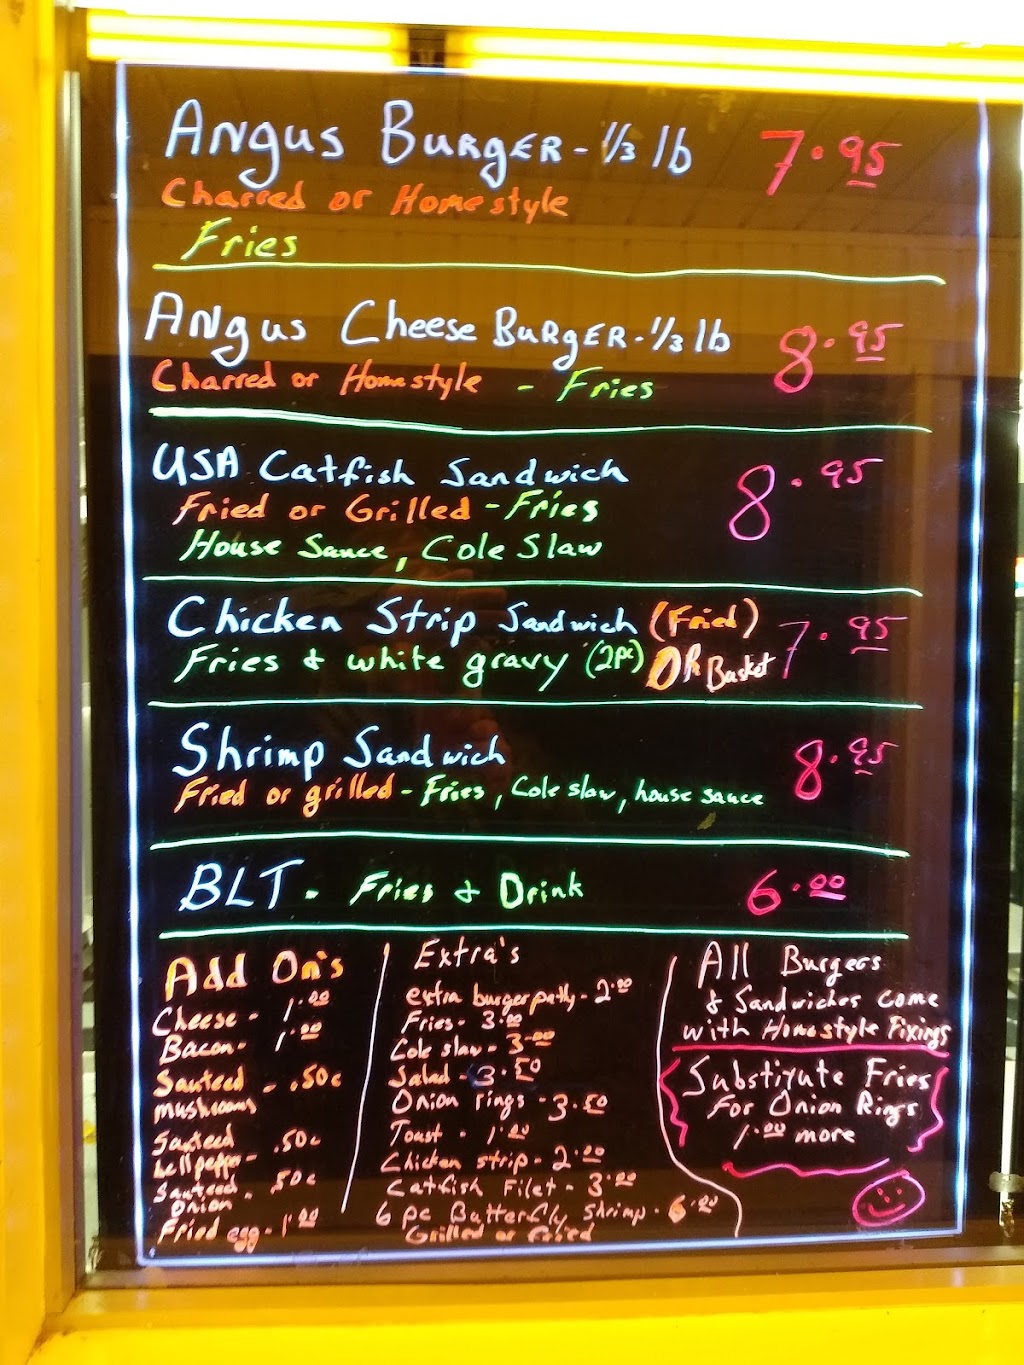 Angus Burger - 1/3 lb 7.95
Charred or Homestyle
Fries
Angus Cheese Burger - 1/3 lb 8.95
Charred or Homestyle - Fries
USA Catfish Sandwich 8.95
Fried or Grilled - Fries
House Sauce, Cole Slaw
Chicken Strip Sandwich (Fried) 7.95
Fries & white gravy (2pc) OR Basket
Shrimp Sandwich 8.95
Fried or grilled - Fries, Cole slaw, house sauce
BLT - Fries & Drink 6.00
Add On's
Cheese - 1.00
Bacon - 1.00
Sauteed - .50c
mushrooms
Sauteed .50c
bell pepper -
Sauteed - .50c
Onion
Fried egg - 1.00
Extra's
extra burger patty - 2.00
Fries - 3.00
Cole slaw - 3.00
Salad - 3.50
Onion rings - 3.50
Toast - 1.00
Chicken strip - 2.00
Catfish Filet - 3.00
6 pc Butterfly Shrimp - 6.00
Grilled or Fried
All Burgers
& Sandwiches come
with Homestyle Fixings
Substitute Fries
For Onion Rings
1.00 more